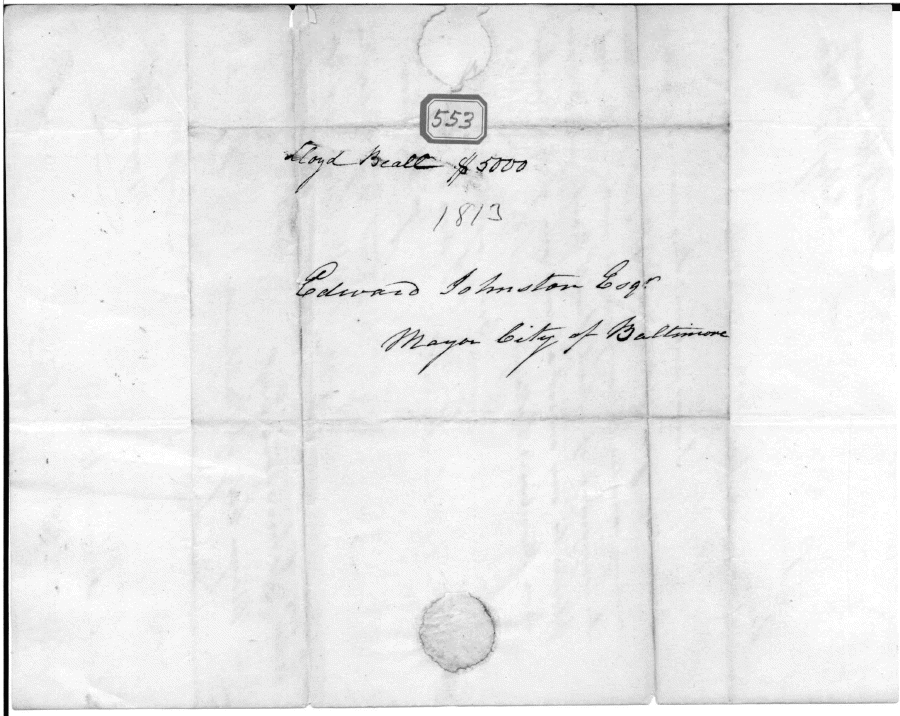 553
Lloyd Beall $5000
1813
Edward Johnston Esqr
Mayor City of Baltimore